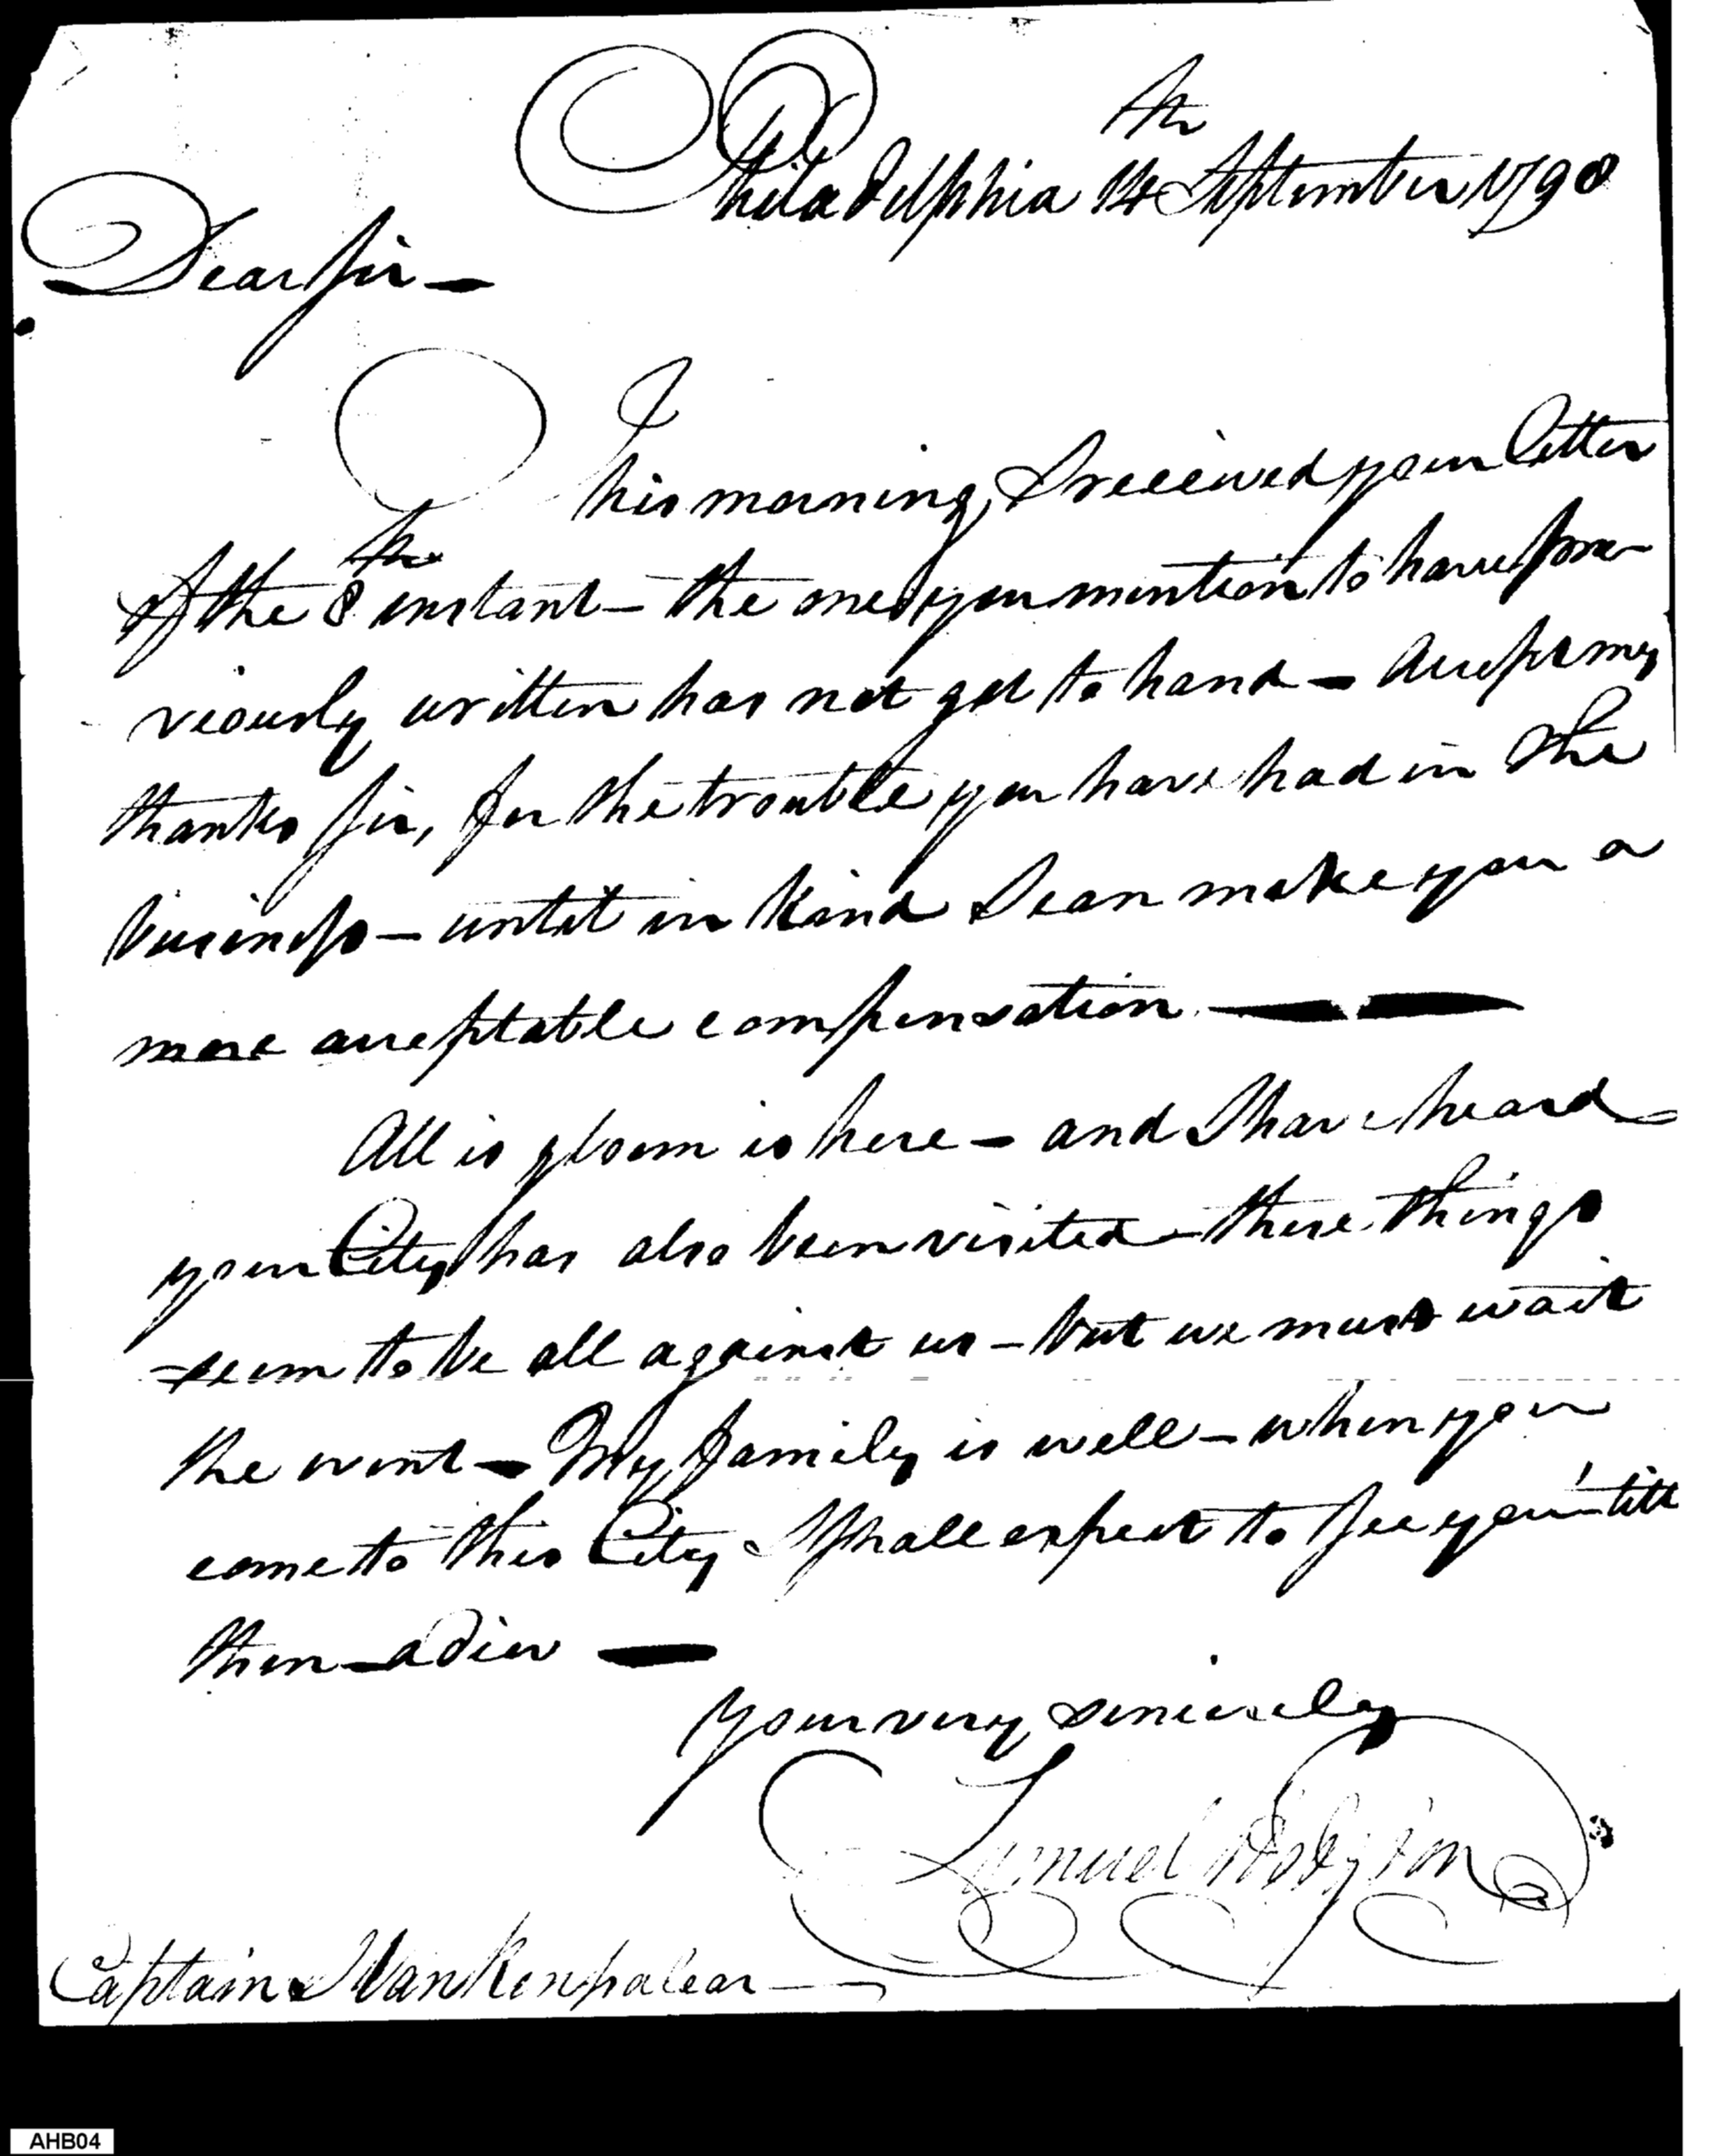 Philadelphia 14th September 1798
Dear Sir —
This morning I received your letter
of the 8th instant — the one you mention to have pre-
viously written has not got to hand — Accept my
thanks Sir, for the trouble you have had in the
business — until in kind I can make you a
more acceptable compensation. —
All is gloom is here — and I have heard
your City has also been visited — these things
seem to be all against us — but we must wait
the event — My family is well — when you
come to this City I shall expect to see you — 'till
then — adieu —
Your very sincerely
Samuel Hodgdon
Captain Vankenpalear —
AHB04